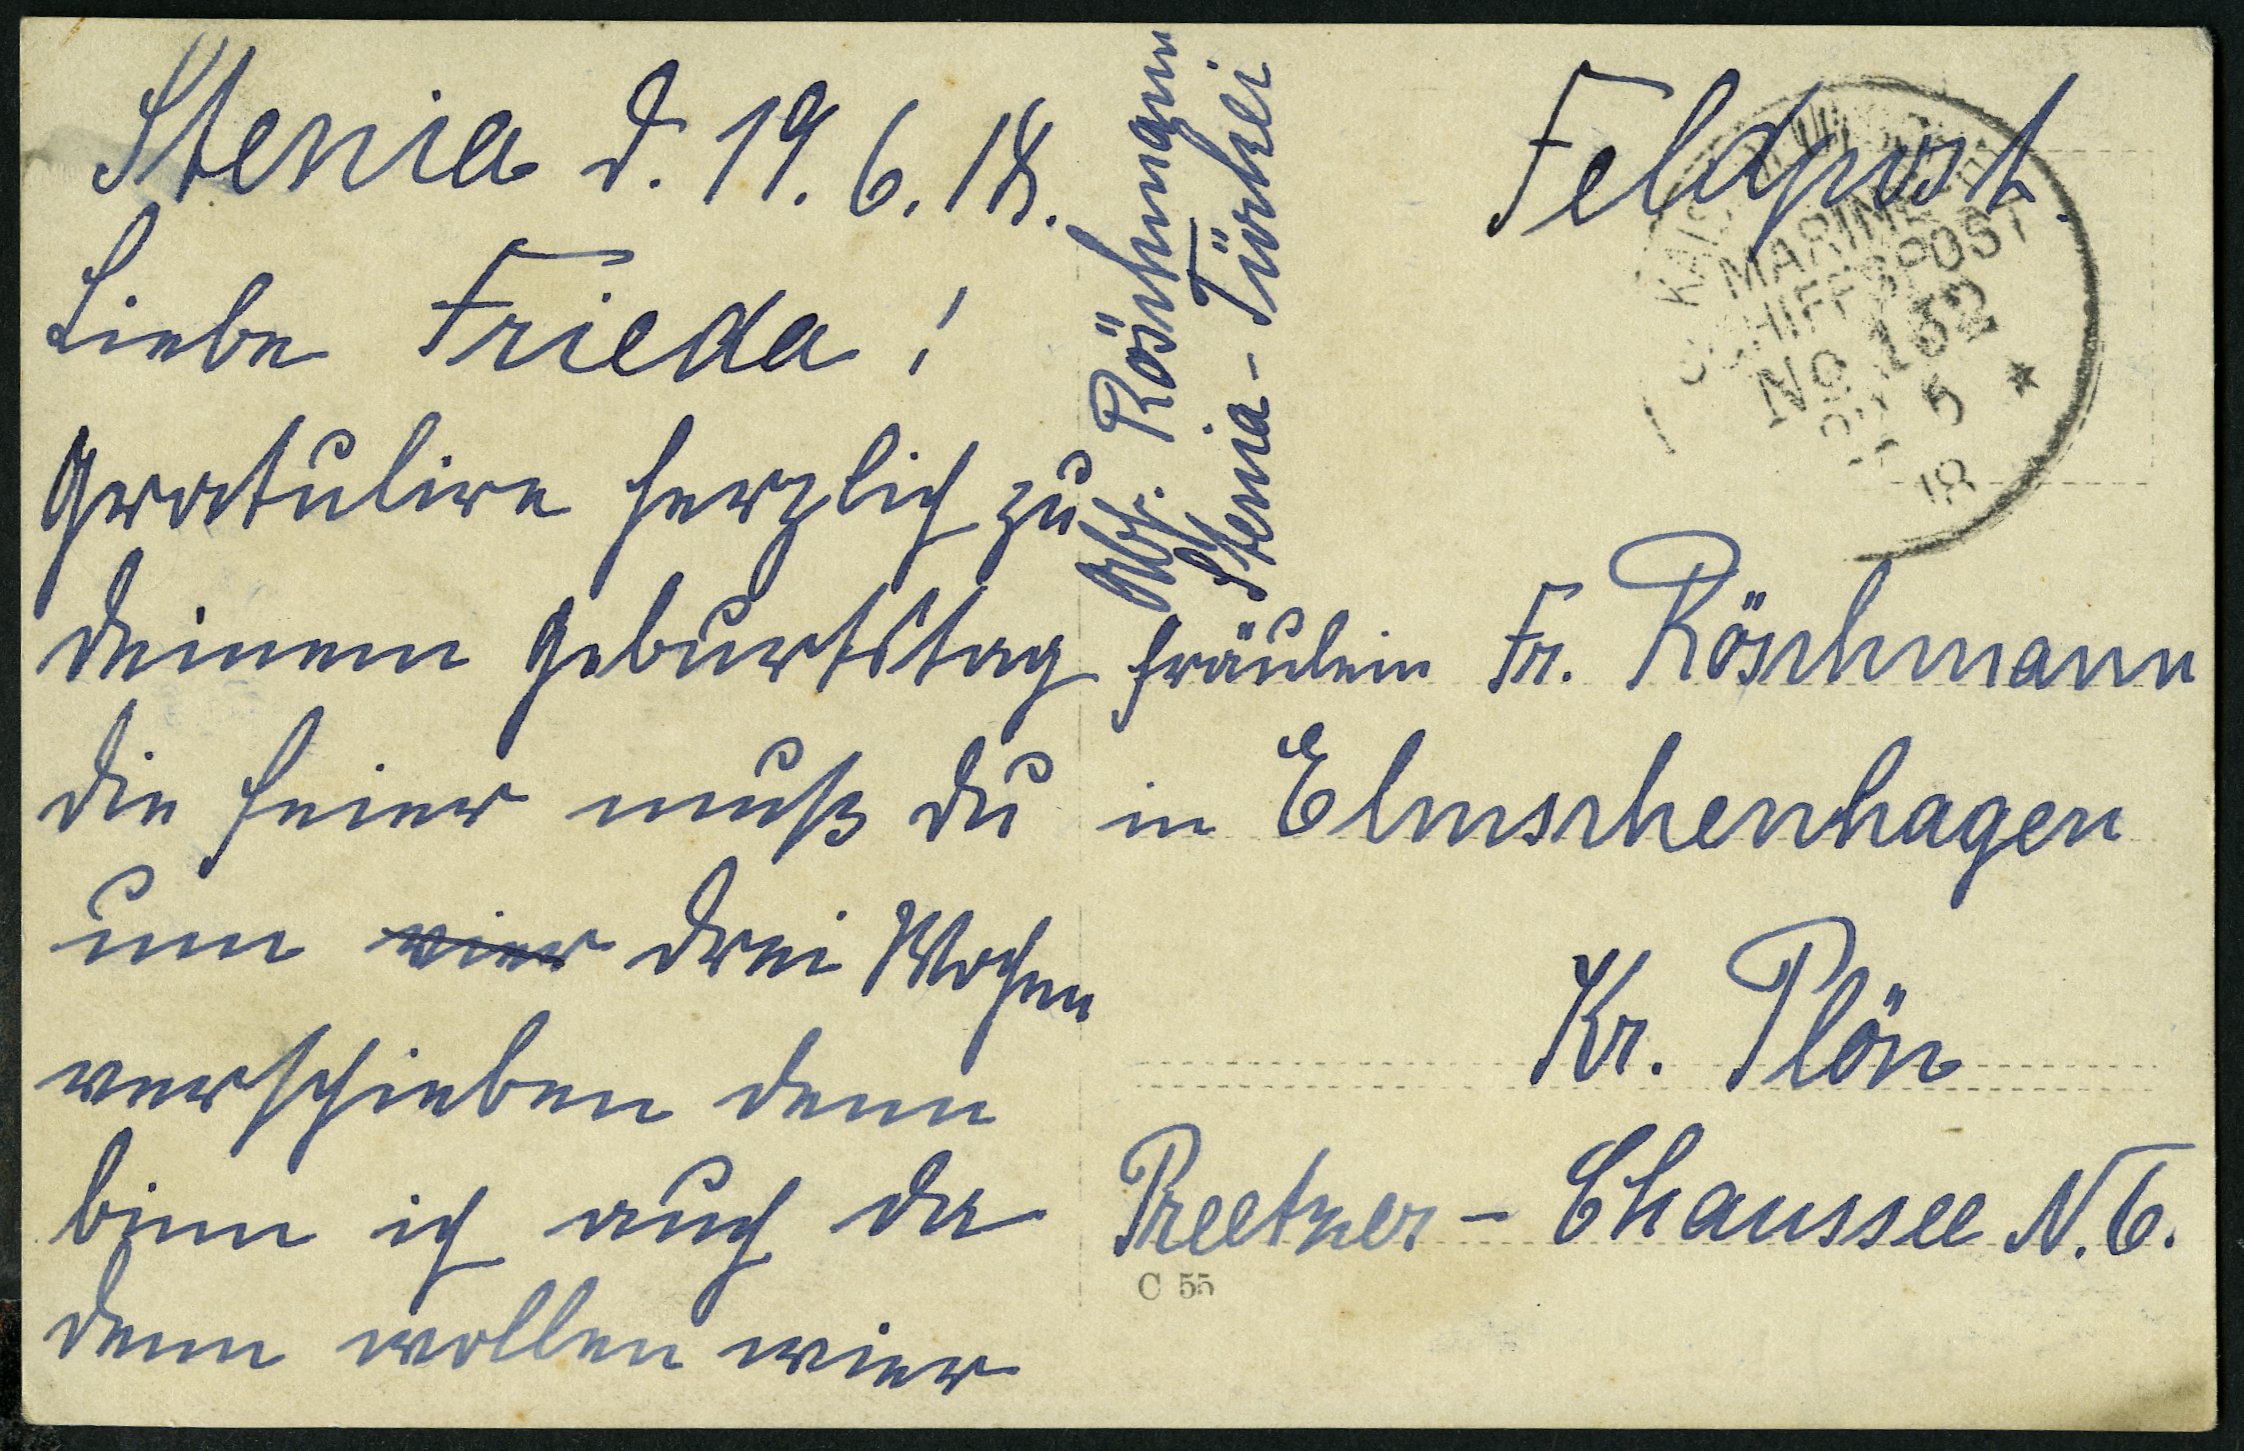 Stenia d. 19. 6. 18.
Liebe Frieda!
Gratulire herzlich zu
deinem Geburtstag
die Feier muß du
um vier drei Wochen
verschieben denn
binn ich auch da
denn wollen wier
Abs. Röschmann
Stenia - Türkei
Feldpost.
MARINE
SCHIFFSPOST
No 132
18
Fräulein Fr. Röschmann
in Elmschenhagen
Kr. Plön
Preetzer - Chaussee N. 6.
C 55